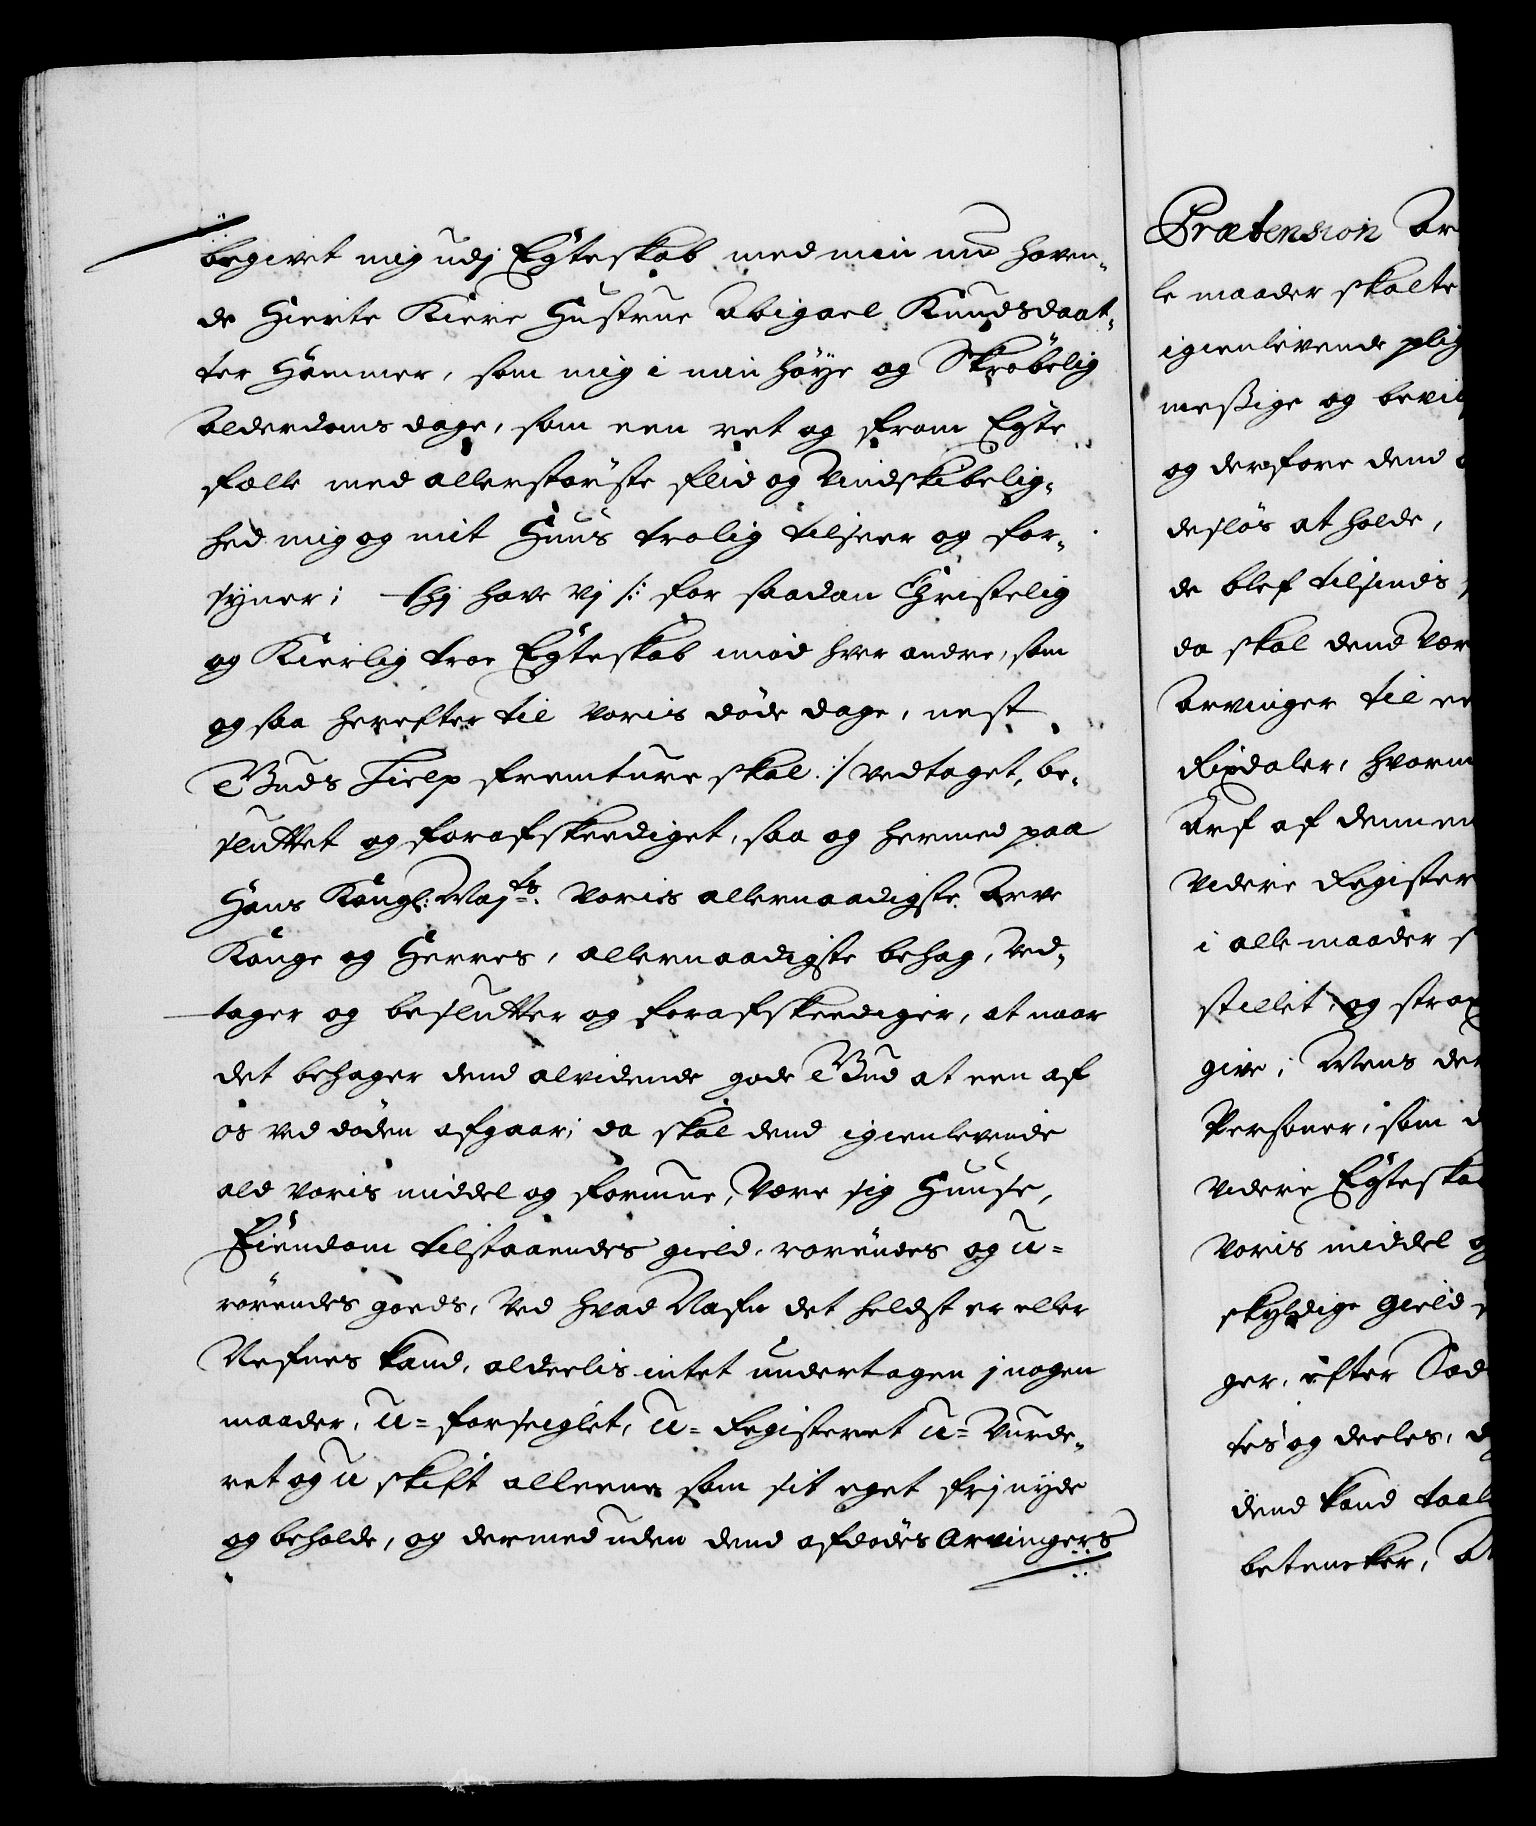 begivet mig udj Egteskab med min nu haven-
de Hierte Kiere Hustrue Abigael Knudsdaat-
ter Hammer, som mig i min høye og Skrøbelig
alderdoms dage, som een ret og from Egte
falle med allerstørste flid og Vindskibelig-
hed mig og mit Huus trolig tilseer og for-
syner; Thj have Vj /: for saadan Christelig
og Kierlig troe Egteskab imod hver andre, som
og saa herefter til voris døde dage, nest
Guds Hielp fremture skal :/ vedtaget, be-
sluttet og forafskeediget, saa og hermed paa
Hans Kongl: Mayts. voris allernaadigste Arve
Konge og Herres, allernaadigste behag, ved-
tager og beslutter og forafskeediger, at naar
det behager dend alvidende gode Gud at een af
os ved døden afgaar; da skal dend igienlevende
ald voris middel og formue, være sig Huuse,
Eiendom tilstaaendes gield, rørendes og u-
rørendes goeds, ved hvad Nafn det heldst er eller
Nefnes kand, aldeelis intet undertagen j nogen
maader, u-forseiglet, u-Registeret u-Vurde-
ret og u skift alleene som sit eget frj nyde
og beholde, og dermed uden dend afdødes Arvingers
Prætension Ar
le maader skalte
igienlevende plig
messige og bevi
og derfore dend
desløs at holde,
de blef tilsinds
da skal dend vær
Arvinger til ee
Rixdaler, hvorm
Arf af dennem
videre Register
i alle maader s
stillet, og strax
give; Mens der
Personer, som d
videre Egteska
voris middel og
skyldige gield
ger, efter Lod
tes og deeles, d
dend kand taal
betencker, At